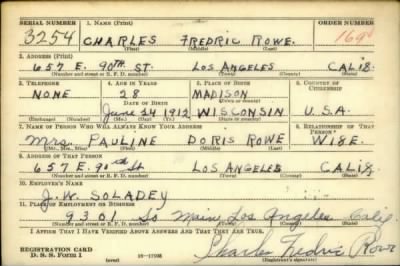 SERIAL NUMBER 1. NAME (Print) ORDER NUMBER
3254 CHARLES FREDRIC ROWE.
(First) (Middle) (Last)
2. ADDRESS (Print)
657 E. 90TH ST. LOS ANGELES CALIF.
(Number and street or R. F. D. number) (Town) (County) (State)
3. TELEPHONE 4. AGE IN YEARS 5. PLACE OF BIRTH 6. COUNTRY OF CITIZENSHIP
NONE 28 MADISON
DATE OF BIRTH (Town or county)
June 24 1912 WISCONSIN U.S.A.
(Exchange) (Number) (Mo.) (Day) (Yr.) (State or country)
7. NAME OF PERSON WHO WILL ALWAYS KNOW YOUR ADDRESS 8. RELATIONSHIP OF THAT PERSON
Mrs. PAULINE DORIS ROWE WIFE.
(Mr., Mrs., Miss) (First) (Middle) (Last)
9. ADDRESS OF THAT PERSON
657 E. 90th St LOS ANGELES CALIF
(Number and street or R. F. D. number) (Town) (County) (State)
10. EMPLOYER'S NAME
J.W. SOLADEY
11. PLACE OF EMPLOYMENT OR BUSINESS
9301 So Main Los Angeles Calif
(Number and street or R. F. D. number) (Town) (County) (State)
I AFFIRM THAT I HAVE VERIFIED ABOVE ANSWERS AND THAT THEY ARE TRUE.
REGISTRATION CARD
D. S. S. FORM 1 (over) 16—17105 Charles Fredric Rowe
(Registrant's signature)